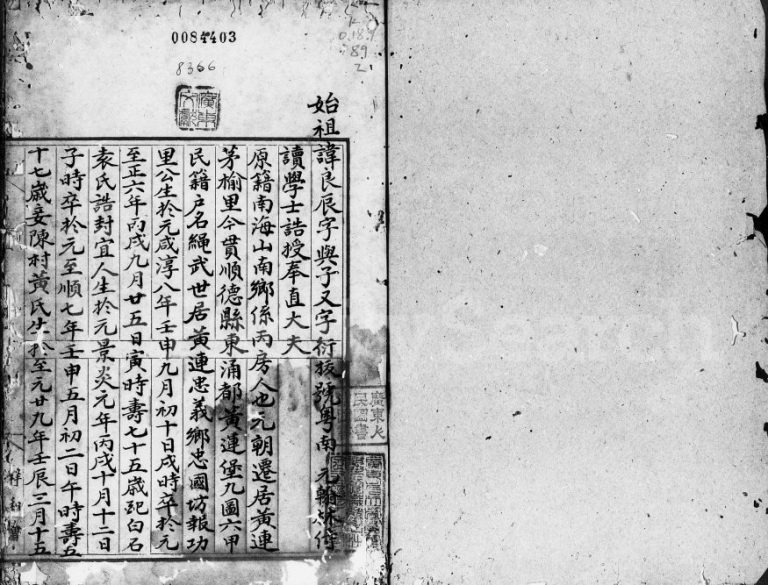 0084403
8366
廣東
始祖諱良辰字與子又字衍拔號粵南元翰林侍
讀學士誥授奉直大夫
原籍南海山南鄉係丙房人也元朝遷居黃連
茅榆里今貫順德縣東涌都黃連堡九圖六甲
民籍户名繩武世居黃連忠義鄉忠國坊報功
里公生於元咸淳八年壬申九月初十日戌時卒於元
至正六年丙戌九月廿五日寅時壽七十五歲配白石
袁氏誥封宜人生於元景炎元年丙戌十月十二日
子時卒於元至順七年壬申五月初二日午時壽五
十七歲妾陳村黃氏生於至元廿九年壬辰三月十五